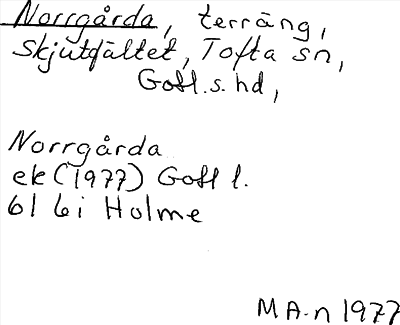 Norrgårda, terräng,
Skjutfältet, Tofta sn,
Gotl. s. hd,
Norrgårda
ek (1977) Gotl l.
6I 6i Holme
M A-n 1977